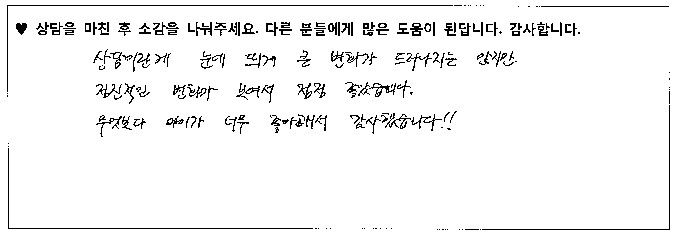 ♥ 상담을 마친 후 소감을 나눠주세요. 다른 분들에게 많은 도움이 된답니다. 감사합니다.
상담이란게 눈에 띄게 큰 변화가 드러나지는 않지만
점진적인 변화가 보여서 점점 좋았습니다.
무엇보다 아이가 너무 좋아해서 감사했습니다!!